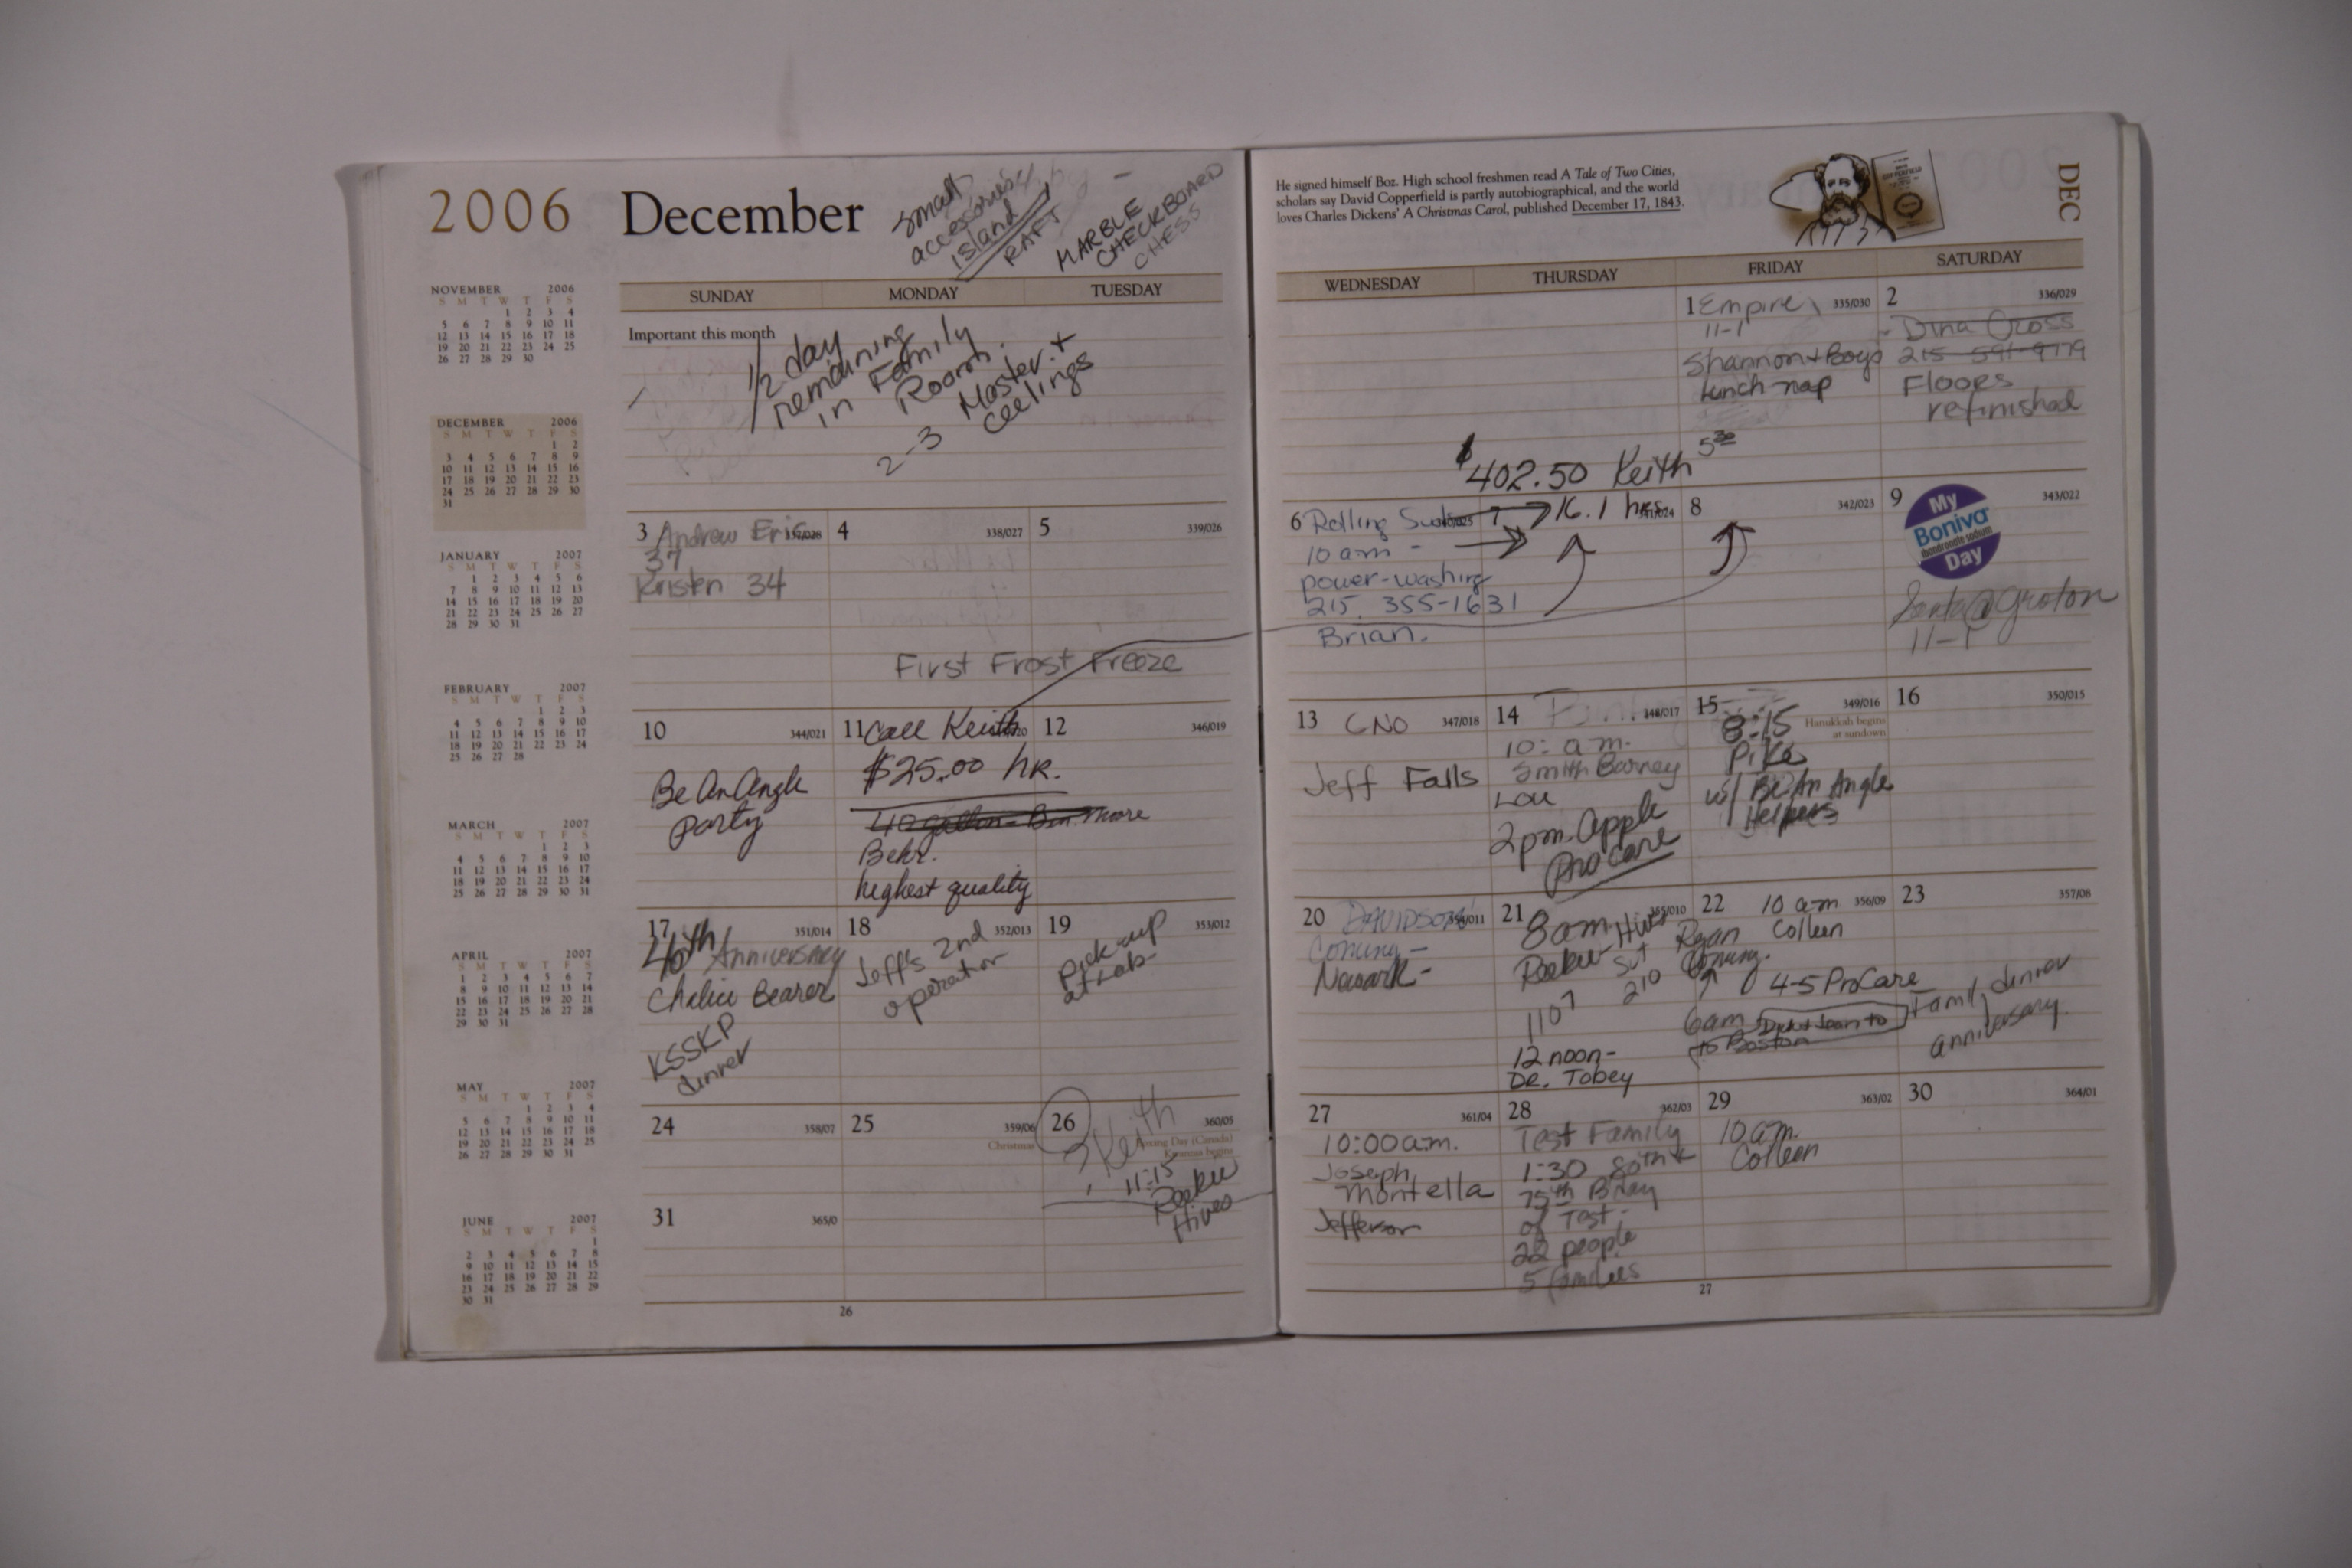 2006 December
small
accessories
island
RAFT
MARBLE
CHECKBOARD
CHESS
He signed himself Boz. High school freshmen read A Tale of Two Cities,
scholars say David Copperfield is partly autobiographical, and the world
loves Charles Dickens' A Christmas Carol, published December 17, 1843.
DEC
NOVEMBER 2006
S M T W T F S
1 2 3 4
5 6 7 8 9 10 11
12 13 14 15 16 17 18
19 20 21 22 23 24 25
26 27 28 29 30
DECEMBER 2006
S M T W T F S
1 2
3 4 5 6 7 8 9
10 11 12 13 14 15 16
17 18 19 20 21 22 23
24 25 26 27 28 29 30
31
JANUARY 2007
S M T W T F S
1 2 3 4 5 6
7 8 9 10 11 12 13
14 15 16 17 18 19 20
21 22 23 24 25 26 27
28 29 30 31
FEBRUARY 2007
S M T W T F S
1 2 3
4 5 6 7 8 9 10
11 12 13 14 15 16 17
18 19 20 21 22 23 24
25 26 27 28
MARCH 2007
S M T W T F S
1 2 3
4 5 6 7 8 9 10
11 12 13 14 15 16 17
18 19 20 21 22 23 24
25 26 27 28 29 30 31
APRIL 2007
S M T W T F S
1 2 3 4 5 6 7
8 9 10 11 12 13 14
15 16 17 18 19 20 21
22 23 24 25 26 27 28
29 30
MAY 2007
S M T W T F S
1 2 3 4 5
6 7 8 9 10 11 12
13 14 15 16 17 18 19
20 21 22 23 24 25 26
27 28 29 30 31
JUNE 2007
S M T W T F S
1 2
3 4 5 6 7 8 9
10 11 12 13 14 15 16
17 18 19 20 21 22 23
24 25 26 27 28 29 30
SUNDAY MONDAY TUESDAY WEDNESDAY THURSDAY FRIDAY SATURDAY
Important this month
1/2 day
remaining
in Family
Room.
2-3 Master +
ceelings
1 Empire 335/030
11-1
Shannon + Boys
lunch nap
2 336/029
Dina Cross
215-591-9779
Floors
refinished
$402.50 Keith 5 30
3 Andrew Eric
37
Kristen 34
4 338/027
5 339/026
First Frost Freeze
6 Rolling Suds
10 am -
power-washing
215. 355-1631
Brian.
7 16.1 hrs
8 342/023
9 343/022
My
Boniva
ibandronate sodium
Day
Santa @ Groton
11-1
10 344/021
Be An Angle
Party
11 Call Keith
$25.00 hr.
40 gallons Ben. Moore
Behr.
highest quality
12 346/019
13 CNO 347/018
Jeff Falls
14 348/017
10: a.m.
Smith Barney
Lou
2pm. Apple
Pro Care
15 349/016
Hanukkah begins
at sundown
8:15
Pika
w/ Be An Angle
Helpers
16 350/015
17 351/014
40th Anniversary
Chalice Bearer
KSSKP
dinner
18 352/013
Jeff's 2nd
operation
19 353/012
Pick-up
at Lab-
20 DAVIDSONS
Coming -
Newark -
21 355/010
8am
Reeku- Hives
Sut
210
1107
12 noon-
DR. Tobey
22 10 am 356/09
Colleen
Ryan
Coming.
4-5 ProCare
6am Dick & Jean to
to Boston
23 357/08
Family dinner
anniversary.
24 358/07
25 359/06
Christmas
26 360/05
Boxing Day (Canada)
Kwanzaa begins
Keith
11:15
Reeku
Hives
27 361/04
10:00 a.m.
Joseph
Montella
Jefferson
28 362/03
Test Family
1:30 80th +
75th Bday
of Test -
22 people
5 families
29 363/02
10 am.
Colleen
30 364/01
31 365/0
26
27